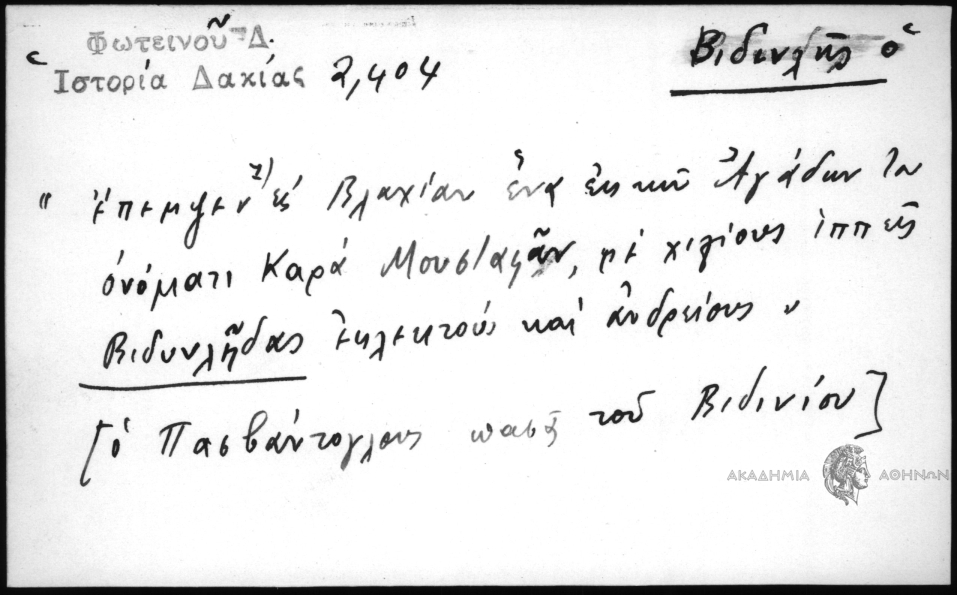 Φωτεινοῦ Δ.
Ἱστορία Δακίας 2,404
Βιδινλῆς ὁ
"ἔπεμψεν 1) εἰς Βλαχίαν ἕνα ἐκ τῶν Ἀγάδων του
ὀνόματι Καρᾶ Μουσταφᾶν, μὲ χιλίους ἱππεῖς
Βιδυνλῆδας ἐκλεκτοὺς καὶ ἀνδρείους"
[ὁ Πασβάντογλους πασᾶς τοῦ Βιδινίου]
ΑΚΑΔΗΜΙΑ ΑΘΗΝΩΝ